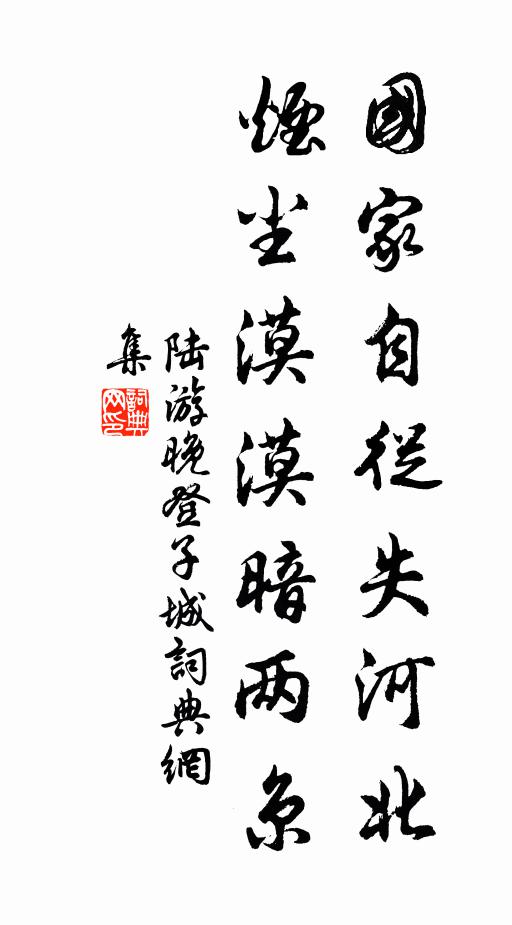 國家自從失河北
煙尘漠漠暗两京
陆游晚登子城詞典網
集
詞典
网印